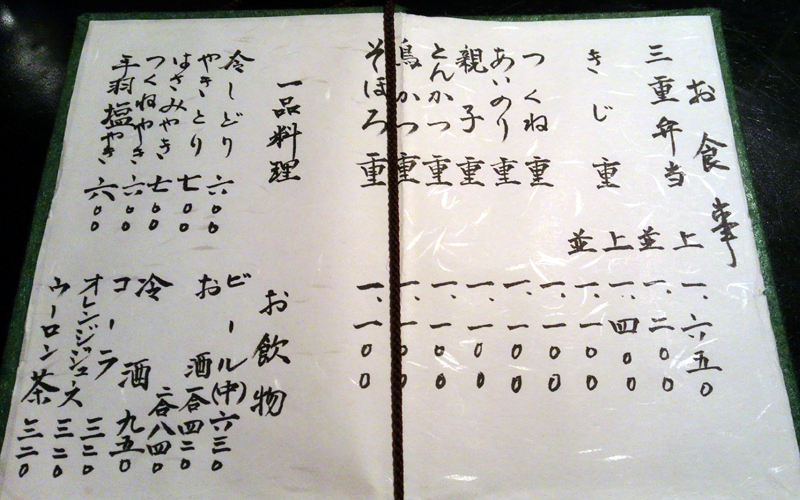 お食事
三重弁当 上 一、六五〇
並 一、二〇〇
きじ重 上 一、四〇〇
並 一、一〇〇
つくね重 一、一〇〇
あいのり重 一、一〇〇
親子重 一、一〇〇
とんかつ重 一、一〇〇
鳥かつ重 一、一〇〇
そぼろ重 一、一〇〇
一品料理
冷しどり 六〇〇
やきとり 七〇〇
はさみやき 七〇〇
つくねやき 六〇〇
手羽塩やき 六〇〇
お飲物
ビール(中) 六三〇
お酒 一合 四二〇
二合 八四〇
冷酒 九五〇
コーラ 三二〇
オレンジジュース 三二〇
ウーロン茶 三二〇